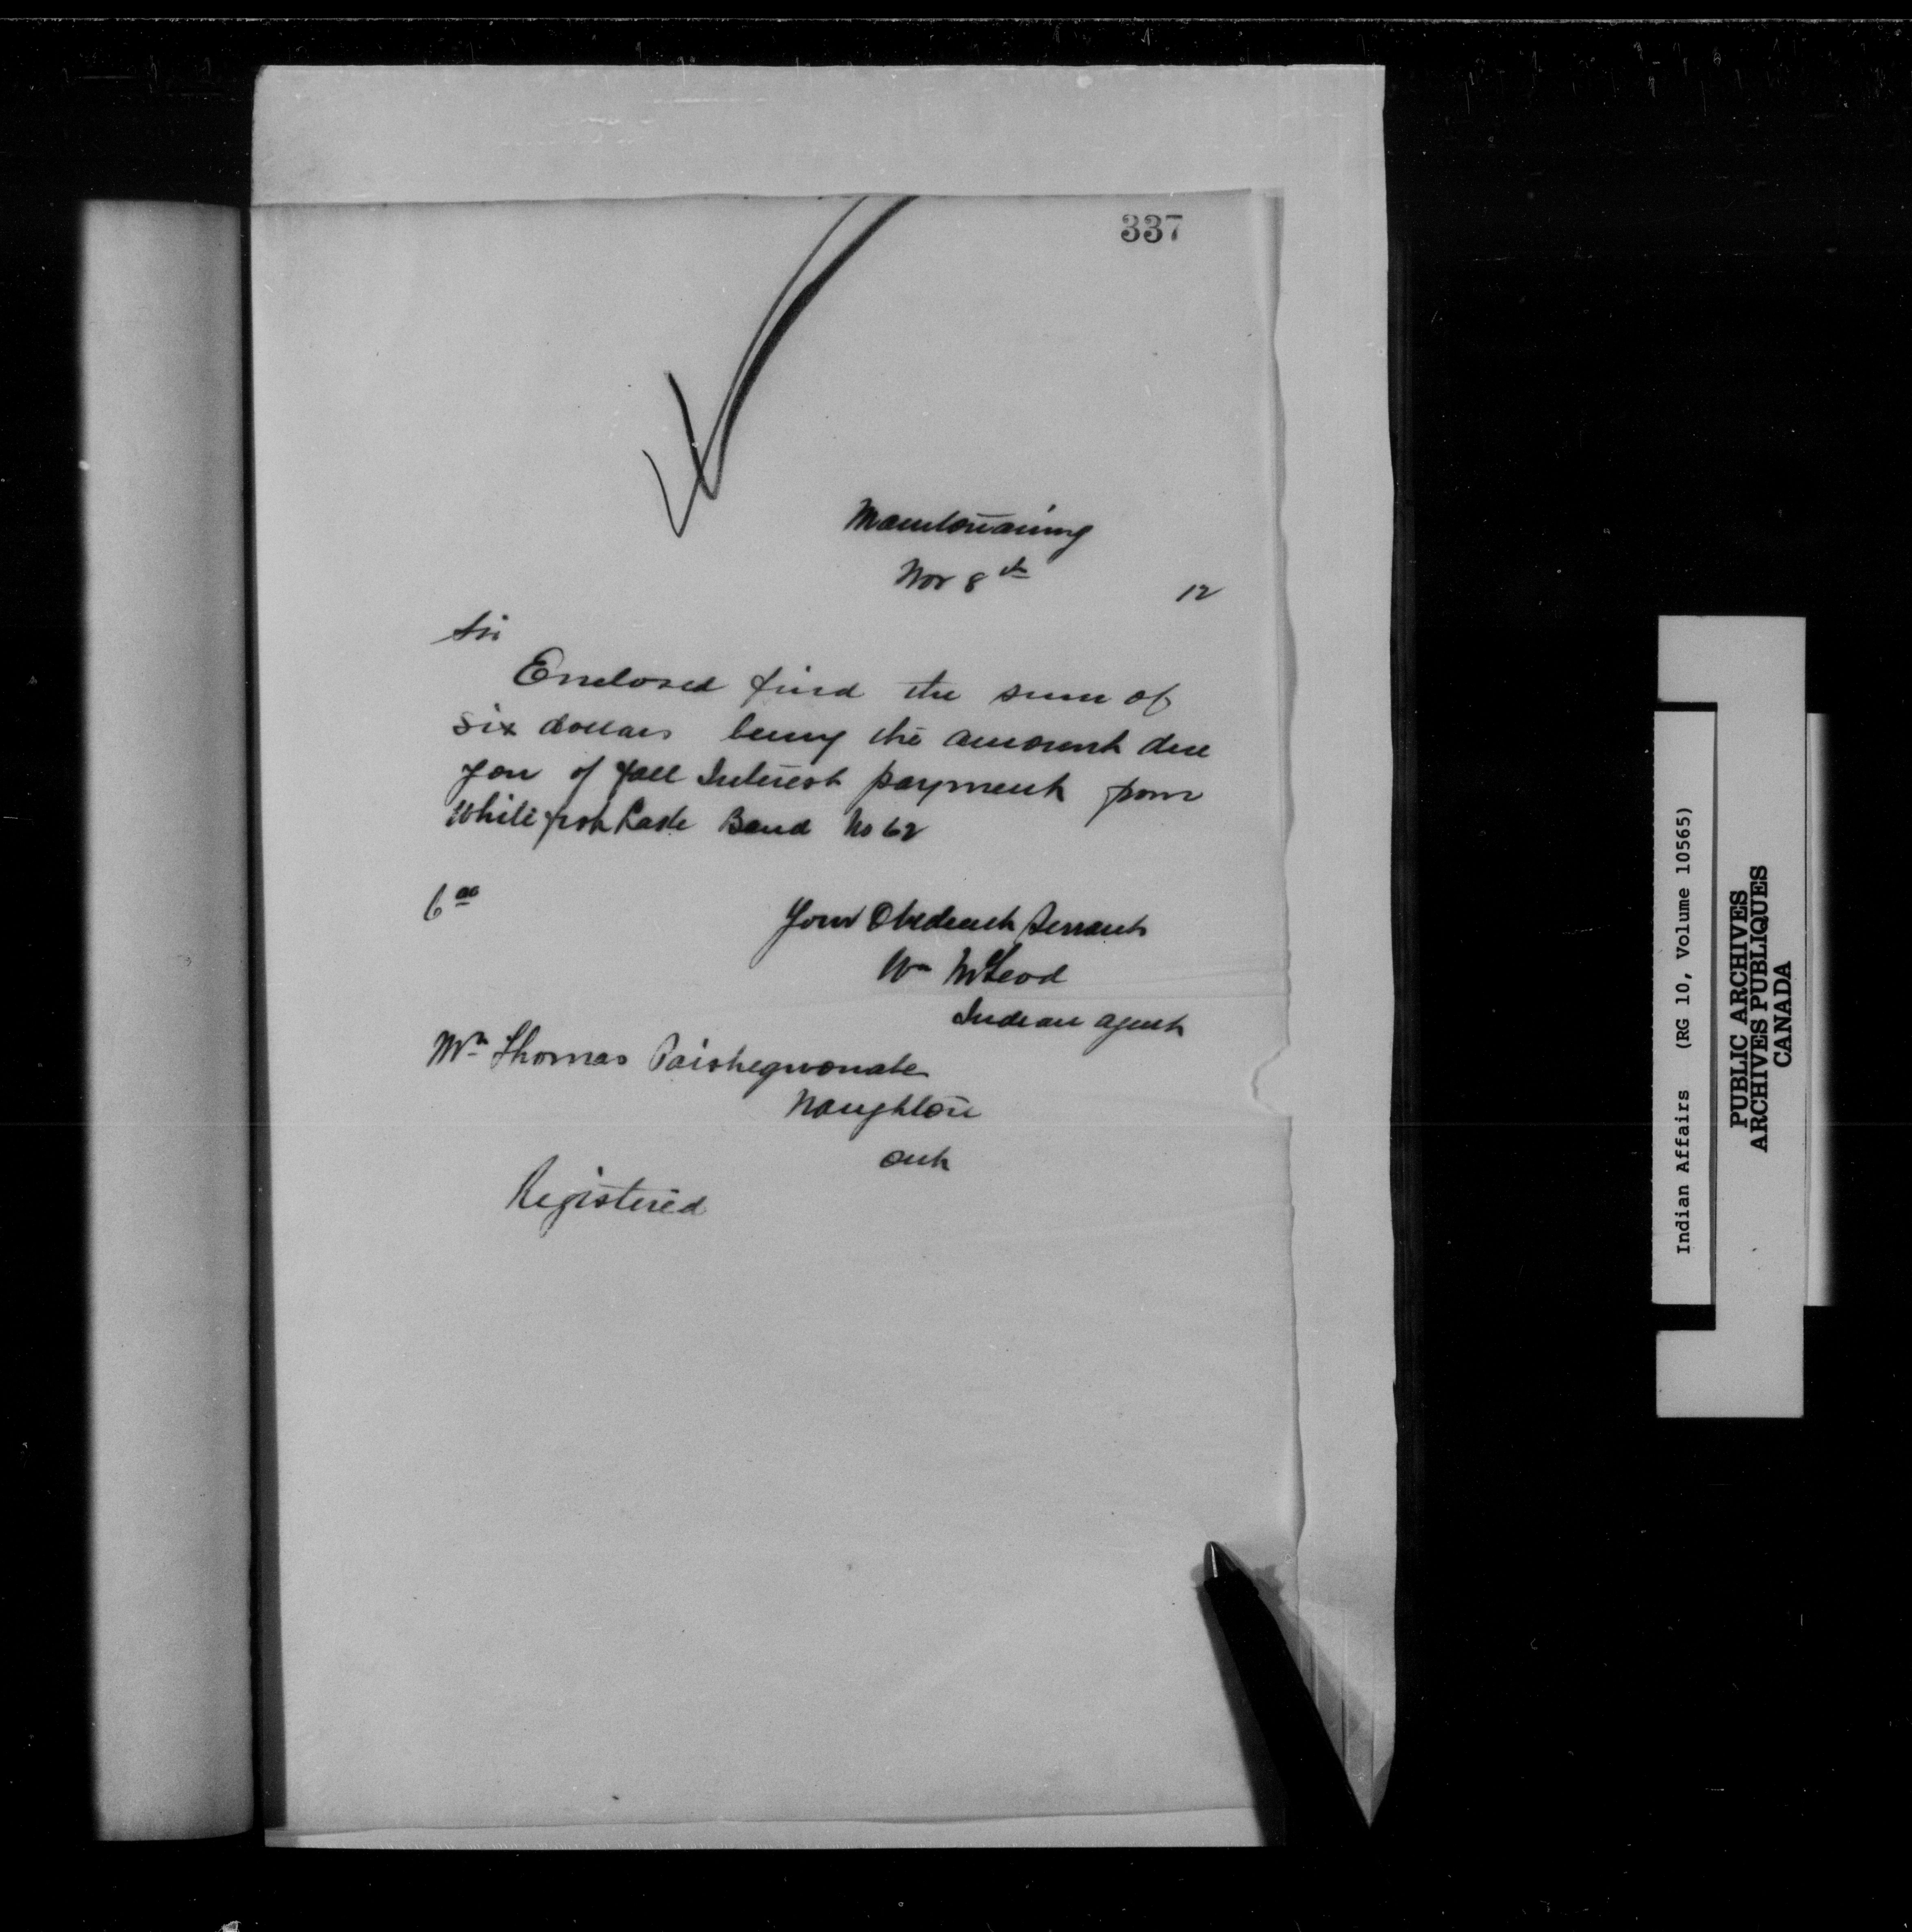 337
Manitowaning
Nov 8th 12
Sir
Enclosed find the sum of
six dollars being the amount due
you of fall Interest payment from
White fish Lake Band No 62
6 00
Your Obedient Servant
Wm McLeod
Indian Agent
Mr Thomas Paishegwonabe
Naughton
Ont
Registered
Indian Affairs (RG 10, Volume 10565)
PUBLIC ARCHIVES
ARCHIVES PUBLIQUES
CANADA